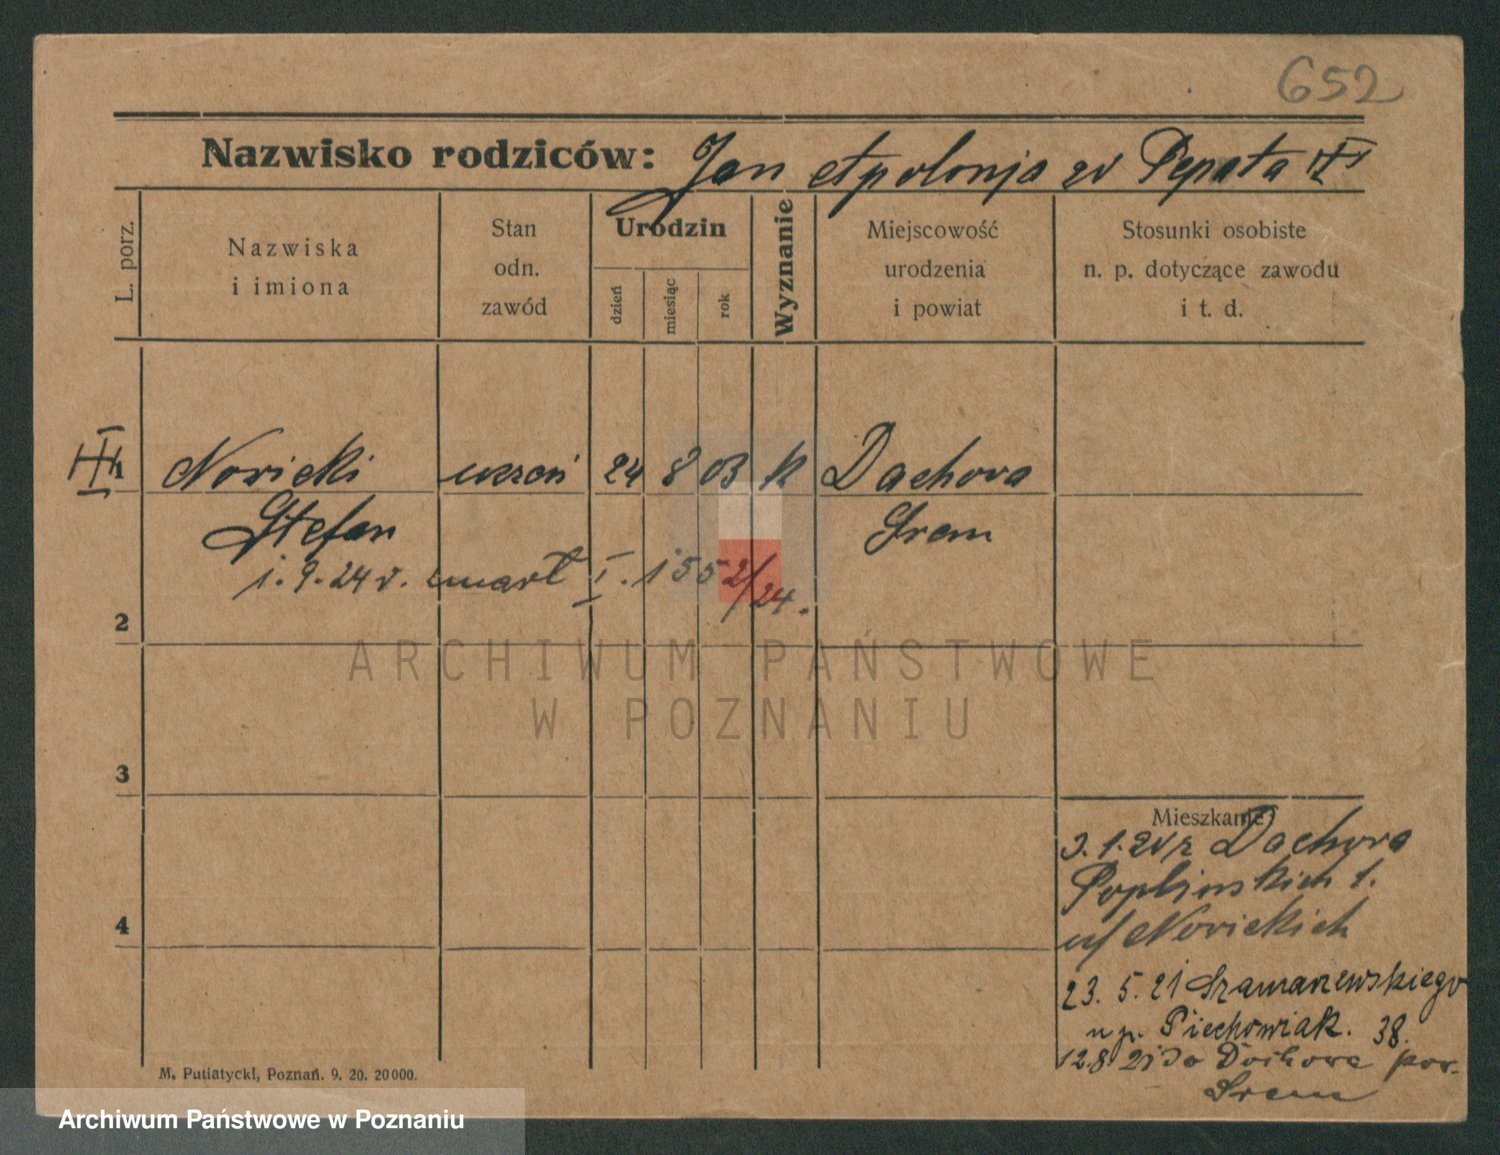 652
Nazwisko rodziców: Jan Apolonja zd Pepeta
L. porz.
Nazwiska
i imiona
Stan
odn.
zawód
Urodzin
dzień
miesiąc
rok
Wyznanie
Miejscowość
urodzenia
i powiat
Stosunki osobiste
n. p. dotyczące zawodu
i t. d.
1 Nowicki uczeń 24 8 03 k Dachowa
Stefan Śrem
1.9.24 r. zmarł I. 1552/24.
2
3
4
Mieszkanie:
3.1.21 z Dachowa
Poplińskich 1.
u/ Nowickich
23. 5. 21 Szamarzewskiego
u p. Piechowiak. 38.
12.8 21 do Dachowa pow.
Śrem
M. Putiatycki, Poznań. 9. 20. 20000.
ARCHIWUM PAŃSTWOWE
W POZNANIU
Archiwum Państwowe w Poznaniu